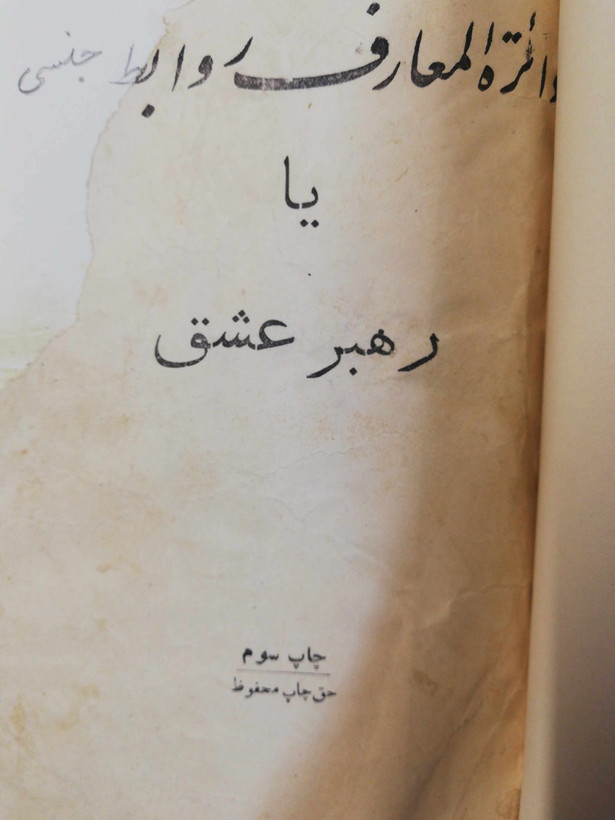 دائرة‌المعارف روابط جنسی
یا
رهبر عشق
چاپ سوم
حق چاپ محفوظ